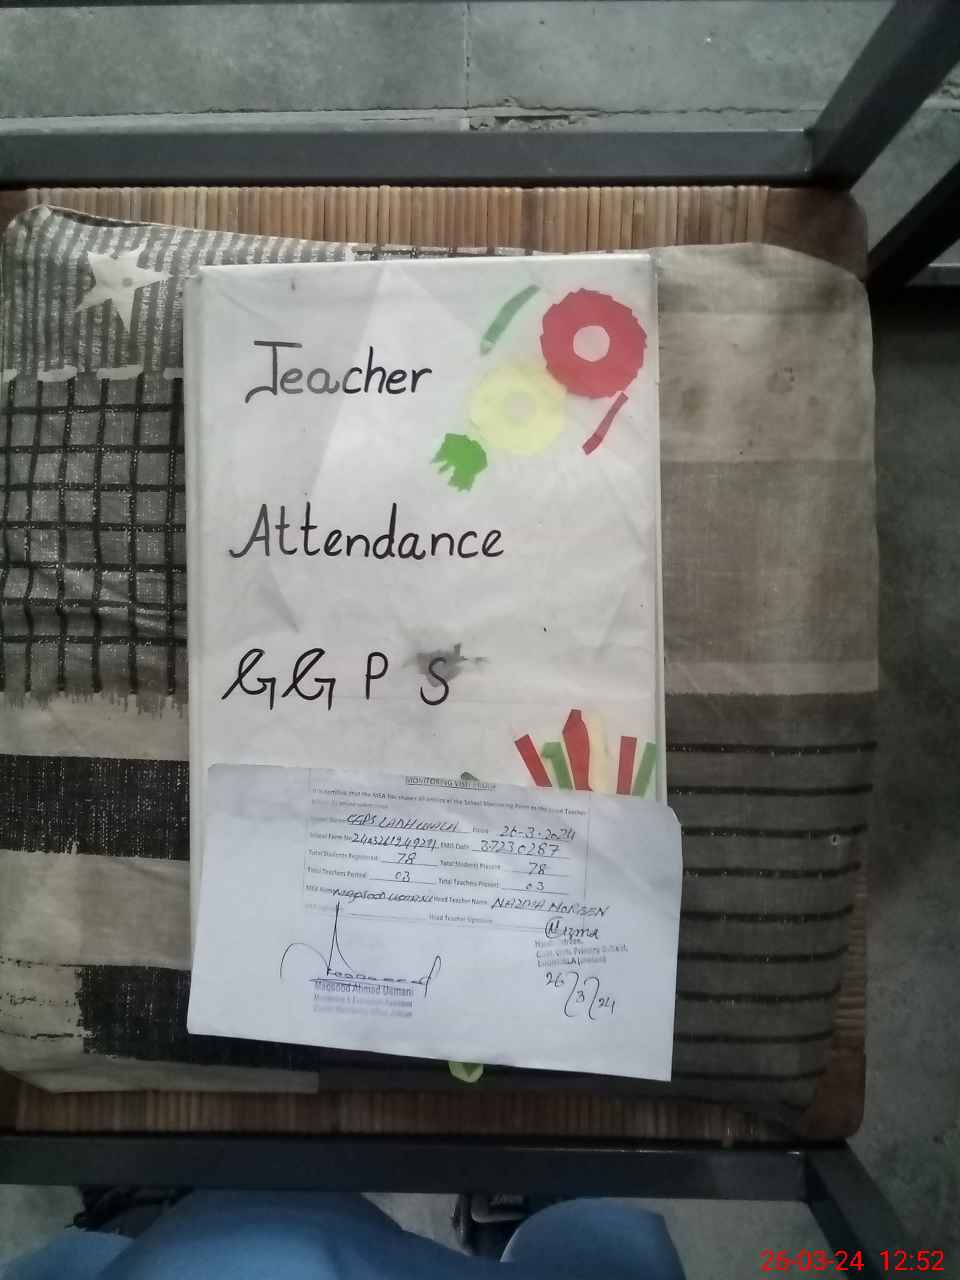 Teacher
Attendance
GGPS
MONITORING VISIT PROOF
It is certified that the MEA has shown all entries of the School Monitoring Form to the Head Teacher
before its onward submission
School Name: GGPS LADHUWALA Dated: 26-3-2024
School Form No: EMIS Code: 37230287
Total Students Registered: 78 Total Students Present: 78
Total Teachers Posted: 03 Total Teachers Present: 03
MEA Name: MAQSOOD USMANI Head Teacher Name: NAZMA NOREEN
MEA Signature: Head Teacher Signature:
Nazma
Govt. Girls Primary School,
26/3/24
Maqsood Ahmad Usmani
Monitoring & Evaluation Assistant
District Monitoring Office
26-03-24 12:52